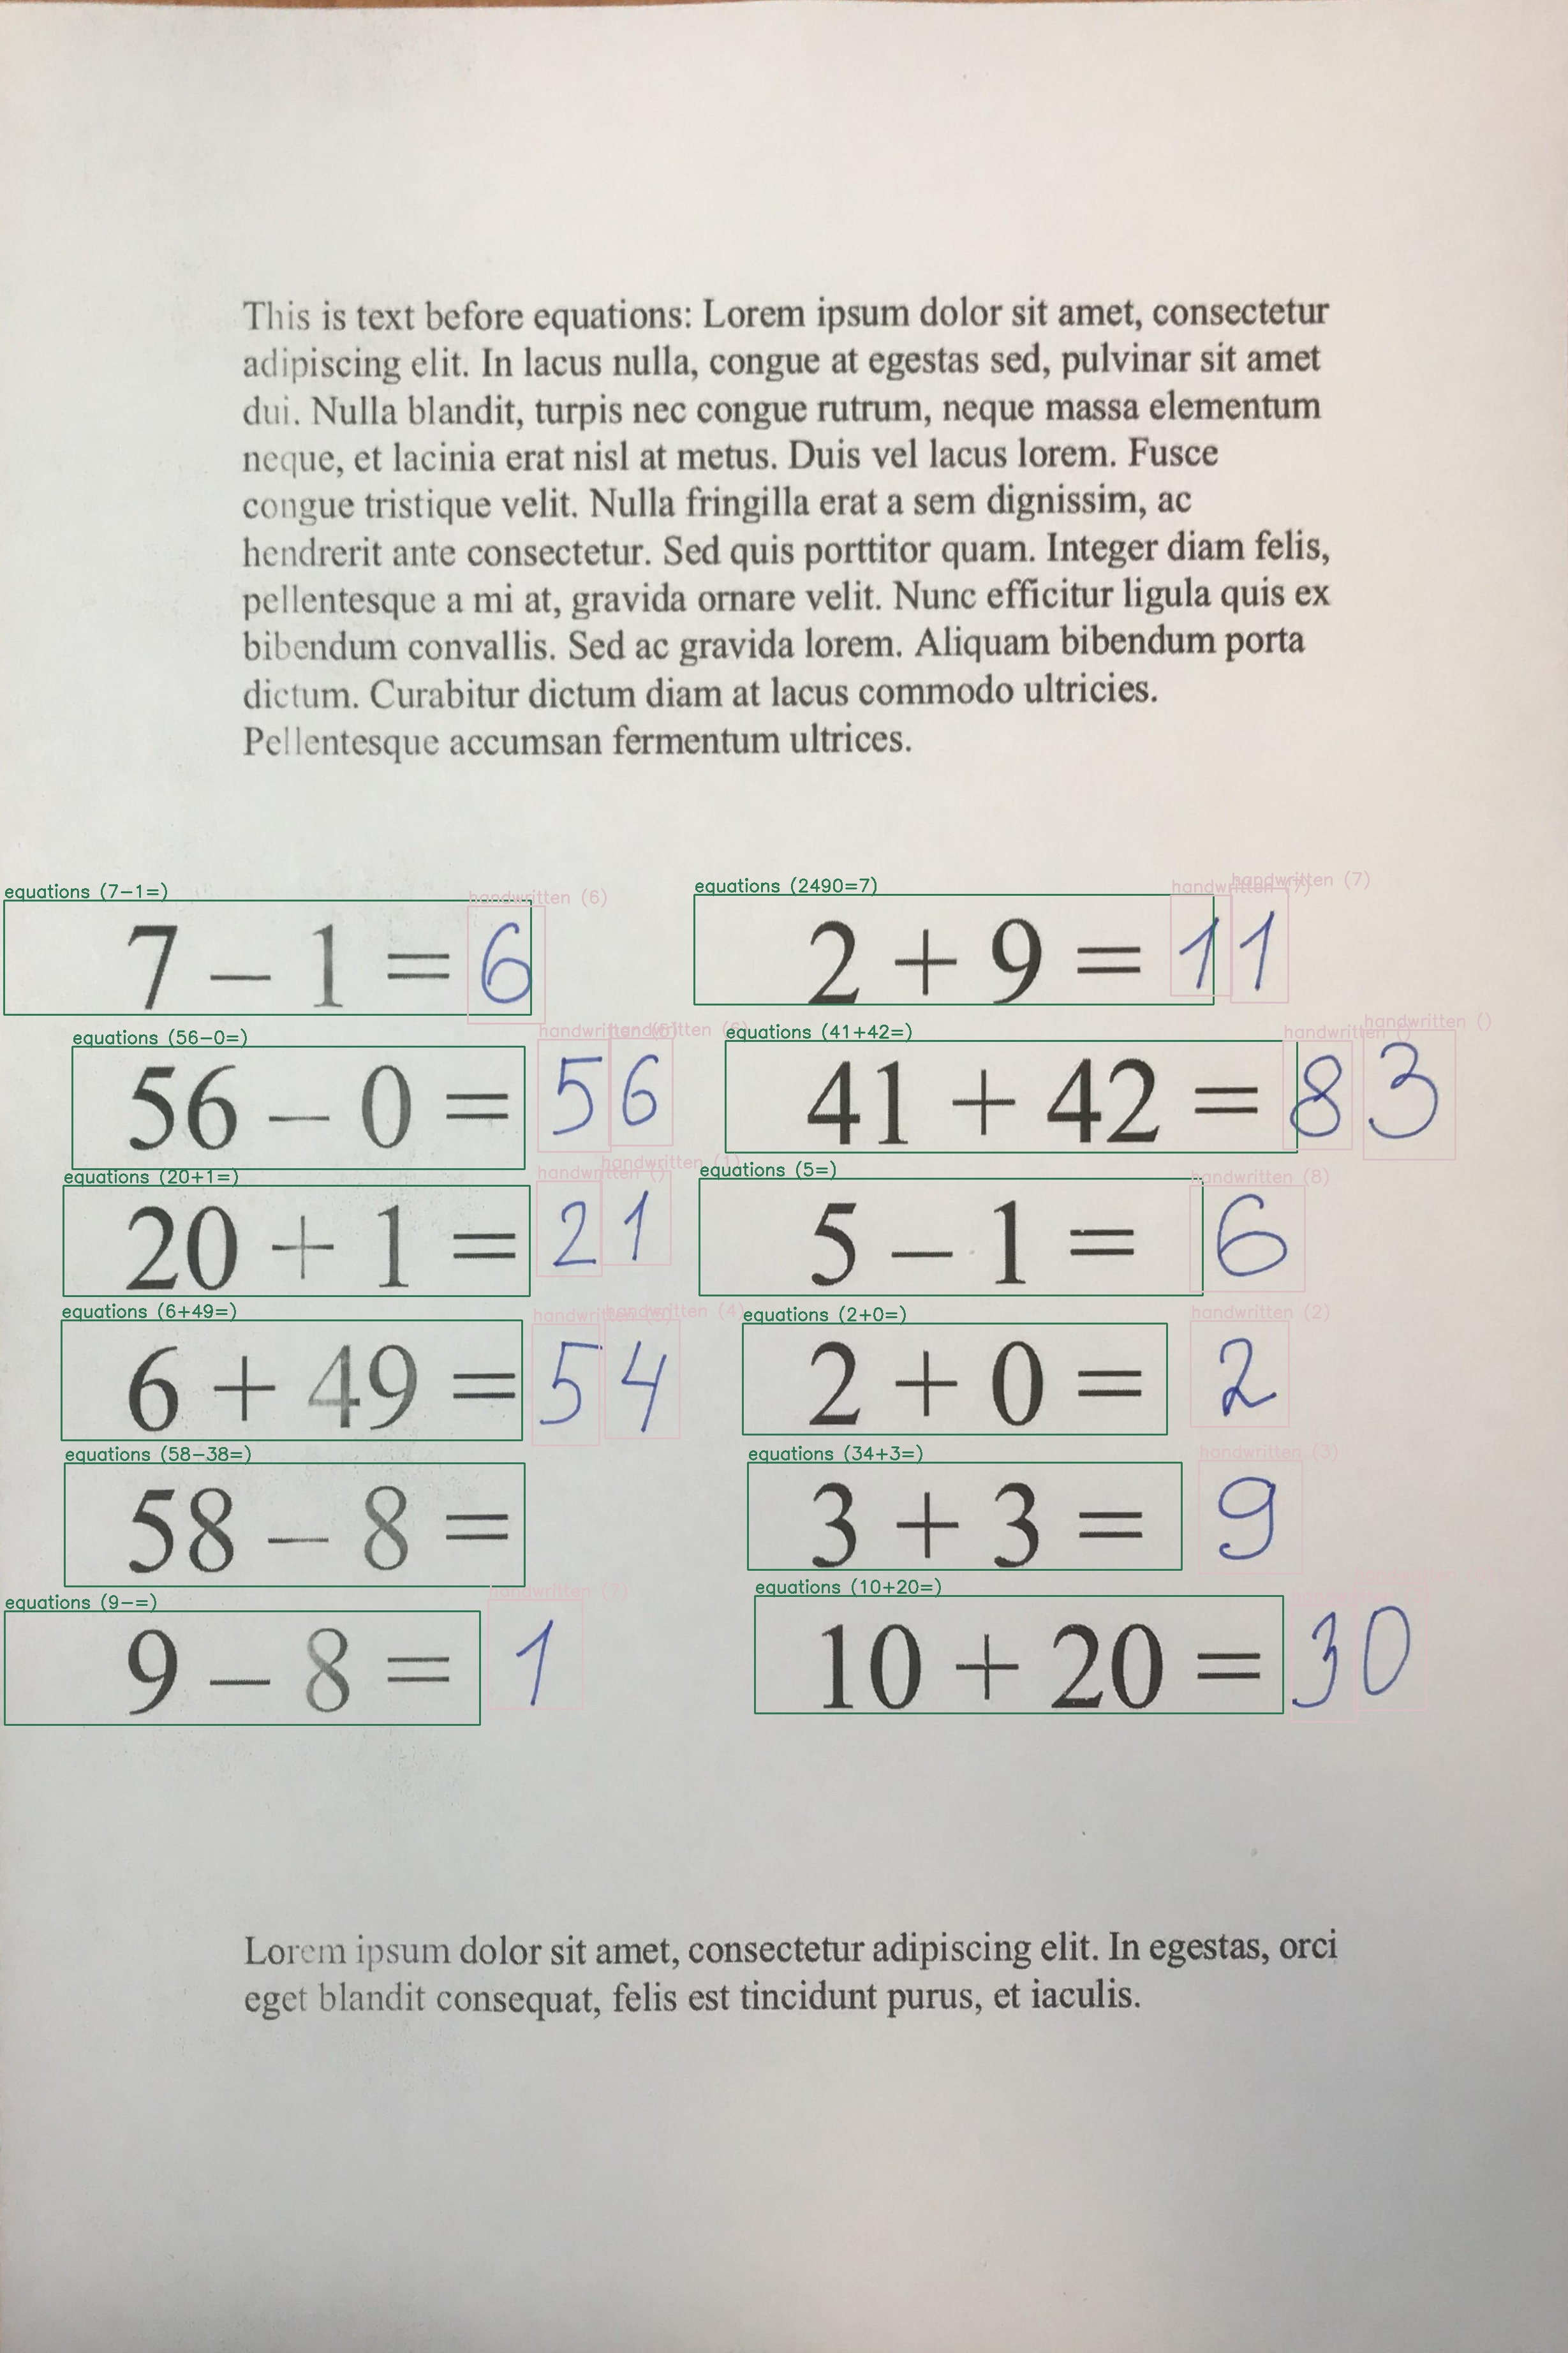 This is text before equations: Lorem ipsum dolor sit amet, consectetur
adipiscing elit. In lacus nulla, congue at egestas sed, pulvinar sit amet
dui. Nulla blandit, turpis nec congue rutrum, neque massa elementum
neque, et lacinia erat nisl at metus. Duis vel lacus lorem. Fusce
congue tristique velit. Nulla fringilla erat a sem dignissim, ac
hendrerit ante consectetur. Sed quis porttitor quam. Integer diam felis,
pellentesque a mi at, gravida ornare velit. Nunc efficitur ligula quis ex
bibendum convallis. Sed ac gravida lorem. Aliquam bibendum porta
dictum. Curabitur dictum diam at lacus commodo ultricies.
Pellentesque accumsan fermentum ultrices.
equations (7-1=) handwritten (6) equations (2490=7) handwritten (7) handwritten (7)
7 – 1 = 6 2 + 9 = 11
equations (56-0=) handwritten (5) handwritten (6) equations (41+42=) handwritten () handwritten ()
56 – 0 = 56 41 + 42 = 83
equations (20+1=) handwritten () handwritten (1) equations (5=) handwritten (8)
20 + 1 = 21 5 – 1 = 6
equations (6+49=) handwritten (5) handwritten (4) equations (2+0=) handwritten (2)
6 + 49 = 54 2 + 0 = 2
equations (58-38=) equations (34+3=) handwritten (3)
58 – 8 = 3 + 3 = 9
equations (9-=) handwritten (7) equations (10+20=)
9 – 8 = 1 10 + 20 = 30
Lorem ipsum dolor sit amet, consectetur adipiscing elit. In egestas, orci
eget blandit consequat, felis est tincidunt purus, et iaculis.